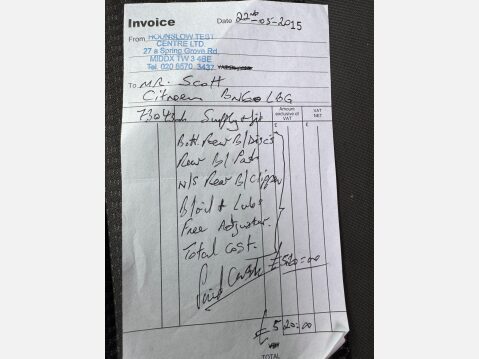 Invoice
Date 22nd-05-2015
From HOUNSLOW TEST
CENTRE LTD.
27 a Spring Grove Rd,
MIDDX TW3 4BE
Tel. 020 8570 3437
To MR. Scott
Citroen BN60 LBG
Amount exclusive of VAT
VAT NET
£
£
Supply & fit
Both Rear B/Discs
Rear B/Pads
N/S Rear B/
B/oil & Lubs
Free Adjuster.
Total Cost.
Paid Cash £520=00
£520=00
TOTAL